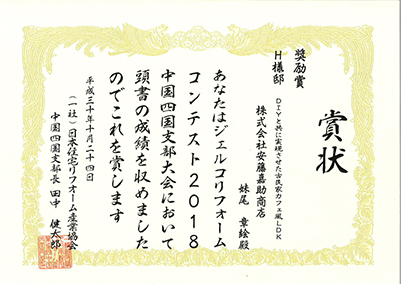 賞状
奨励賞
H様邸
DIYと共に実現させた古民家カフェ風LDK
株式会社安藤嘉助商店
妹尾 章絵殿
あなたはジェルコリフォーム
コンテスト2018
中国四国支部大会において
頭書の成績を収めました
のでこれを賞します
平成三十年十月二十四日
(一社)日本住宅リフォーム産業協会
中国四国支部長 田中 健太郎